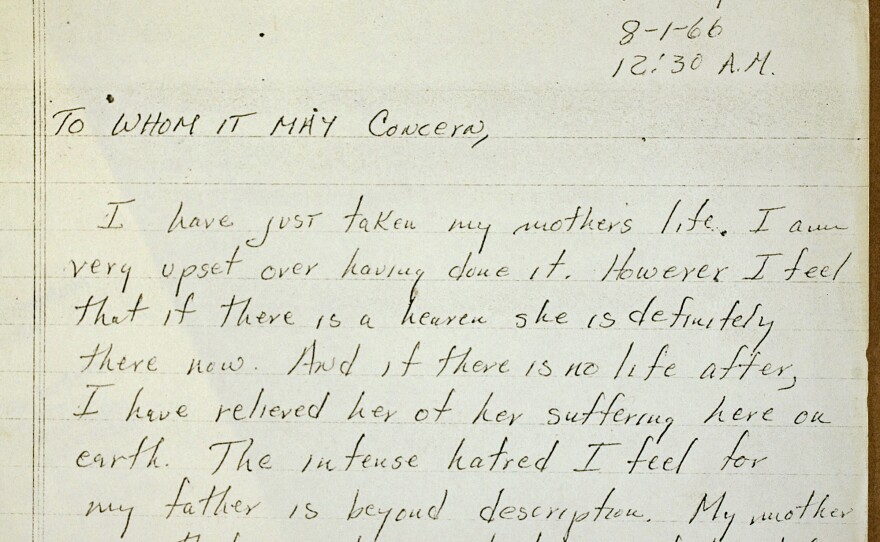 8-1-66
12:30 A.M.
TO WHOM IT MAY Concern,
I have just taken my mother's life. I am
very upset over having done it. However I feel
that if there is a heaven she is definitely
there now. And if there is no life after,
I have relieved her of her suffering here on
earth. The intense hatred I feel for
my father is beyond description. My mother